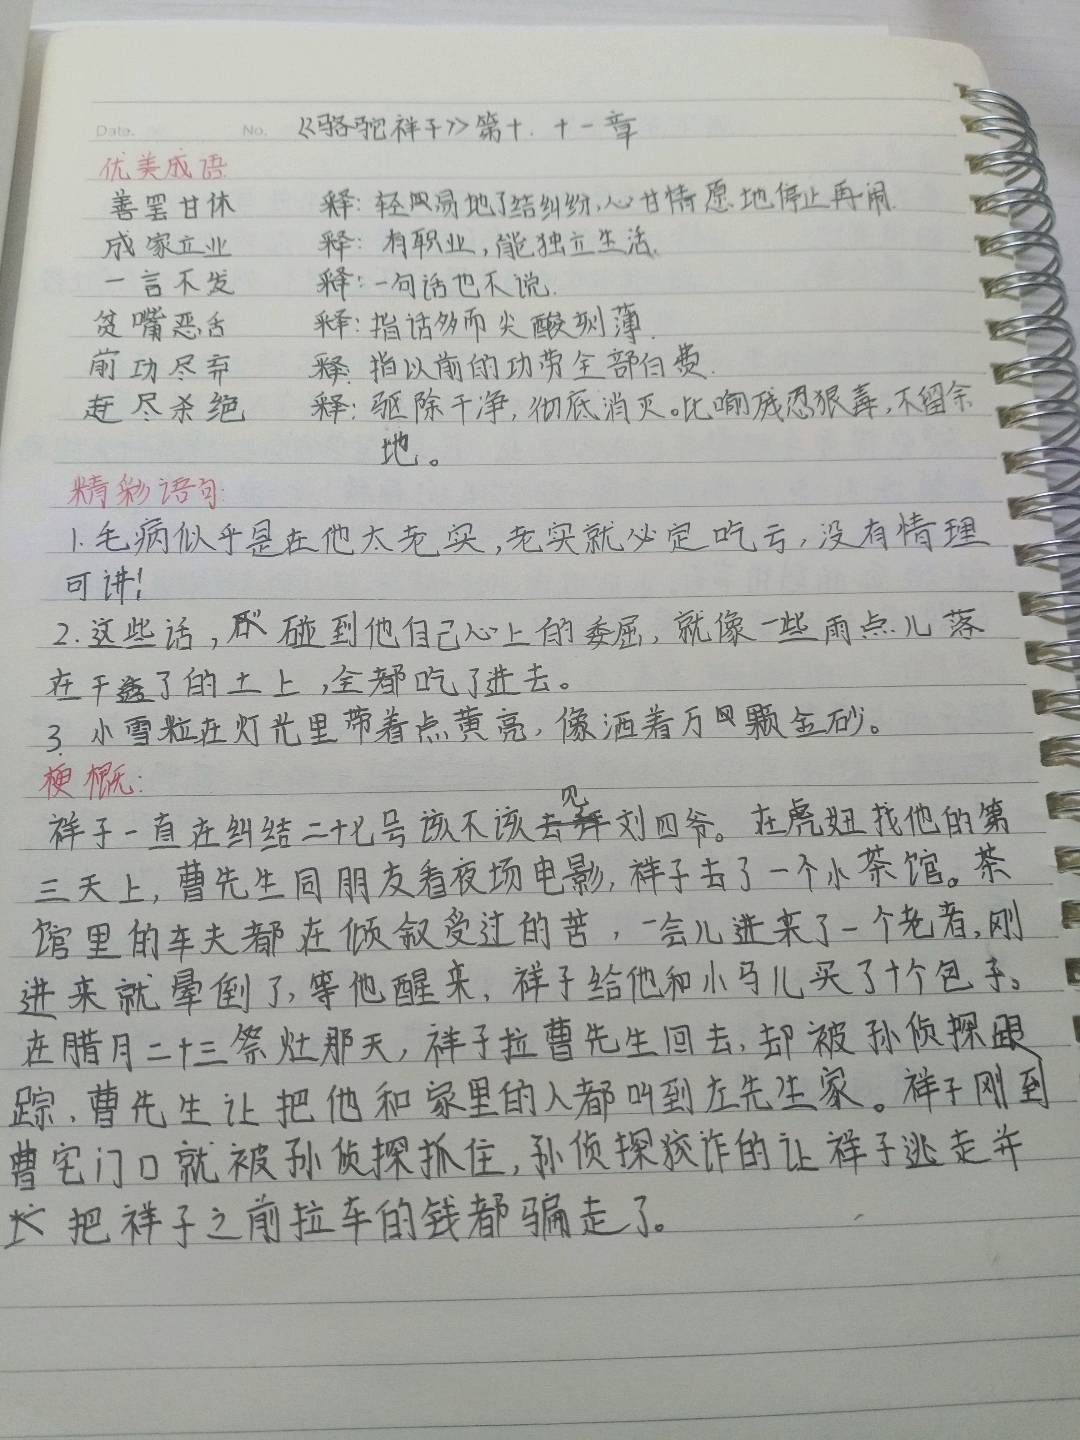 Date. No. 《骆驼祥子》第十.十一章
优美成语
善罢甘休 释:轻易地了结纠纷,心甘情愿地停止再闹.
成家立业 释:有职业,能独立生活.
一言不发 释:一句话也不说.
贫嘴恶舌 释:指话多而尖酸刻薄.
前功尽弃 释:指以前的功劳全部白费.
赶尽杀绝 释:驱除干净,彻底消灭。比喻残忍狠毒,不留余
地。
精彩语句:
1.毛病似乎是在他太老实,老实就必定吃亏,没有情理
可讲!
2.这些话,碰到他自己心上的委屈,就像一些雨点儿落
在干透了的土上,全都吃了进去。
3.小雪粒在灯光里带着点黄亮,像洒着万颗金砂。
梗概:
祥子一直在纠结二十七号该不该去见刘四爷。在虎妞找他的第
三天上,曹先生同朋友看夜场电影,祥子去了一个小茶馆。茶
馆里的车夫都在倾叙受过的苦,一会儿进来了一个老者,刚
进来就晕倒了,等他醒来,祥子给他和小马儿买了十个包子。
在腊月二十三祭灶那天,祥子拉曹先生回去,却被孙侦探跟
踪,曹先生让把他和家里的人都叫到左先生家。祥子刚到
曹宅门口就被孙侦探抓住,孙侦探狡诈的让祥子逃走并
把祥子之前拉车的钱都骗走了。